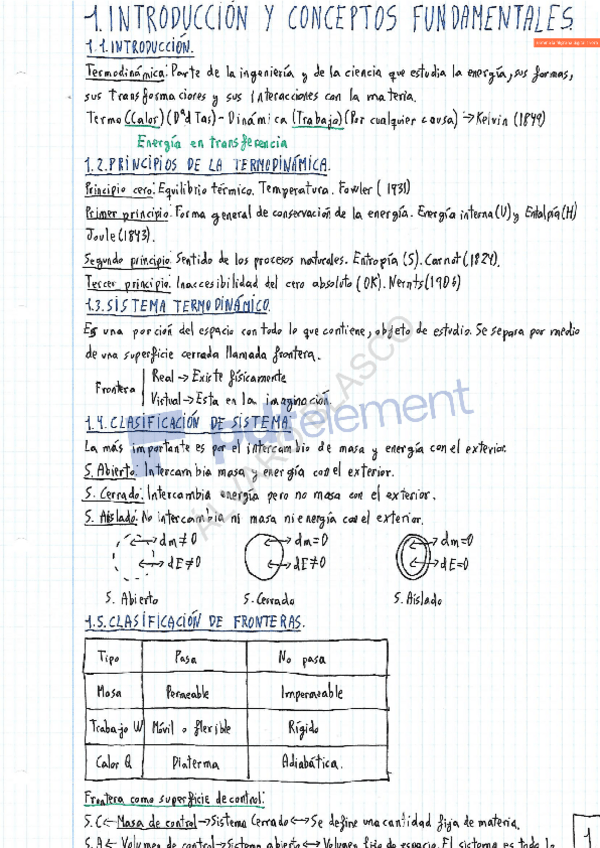 1. INTRODUCCIÓN Y CONCEPTOS FUNDAMENTALES.
1.1. INTRODUCCIÓN.
Termodinámica: Parte de la ingeniería y de la ciencia que estudia la energía, sus formas,
sus transformaciones y sus interacciones con la materia.
Termo (Calor) (Dªd Tas) - Dinámica (Trabajo) (Por cualquier causa) → Kelvin (1849)
Energía en transferencia
1.2. PRINCIPIOS DE LA TERMODINÁMICA.
Principio cero: Equilibrio térmico. Temperatura. Fowler (1931)
Primer principio: Forma general de conservación de la energía. Energía interna (U) y Entalpía (H)
Joule (1843).
Segundo principio: Sentido de los procesos naturales. Entropía (S). Carnot (1824).
Tercer principio: Inaccesibilidad del cero absoluto (0K). Nernts (1906)
1.3. SISTEMA TERMODINÁMICO.
Es una porción del espacio con todo lo que contiene, objeto de estudio. Se separa por medio
de una superficie cerrada llamada frontera.
Frontera
Real → Existe físicamente
Virtual → Esta en la imaginación.
1.4. CLASIFICACIÓN DE SISTEMA:
La más importante es por el intercambio de masa y energía con el exterior.
S. Abierto: Intercambia masa y energía con el exterior.
S. Cerrado: Intercambia energía pero no masa con el exterior.
S. Aislado: No intercambia ni masa ni energía con el exterior.
dm≠0 dm=0 dm=0
dE≠0 dE≠0 dE=0
S. Abierto S. Cerrado S. Aislado
1.5. CLASIFICACIÓN DE FRONTERAS.
Tipo Pasa No pasa
Masa Permeable Impermeable
Trabajo W Móvil o flexible Rígido
Calor Q Diaterma Adiabática.
Frontera como superficie de control:
S.C ← Masa de control → Sistema Cerrado ↔ Se define una cantidad fija de materia.
S.A ← Volumen de control → Sistema abierto ↔ Volumen fijo de espacio. El sistema es todo lo
1
pdfelement